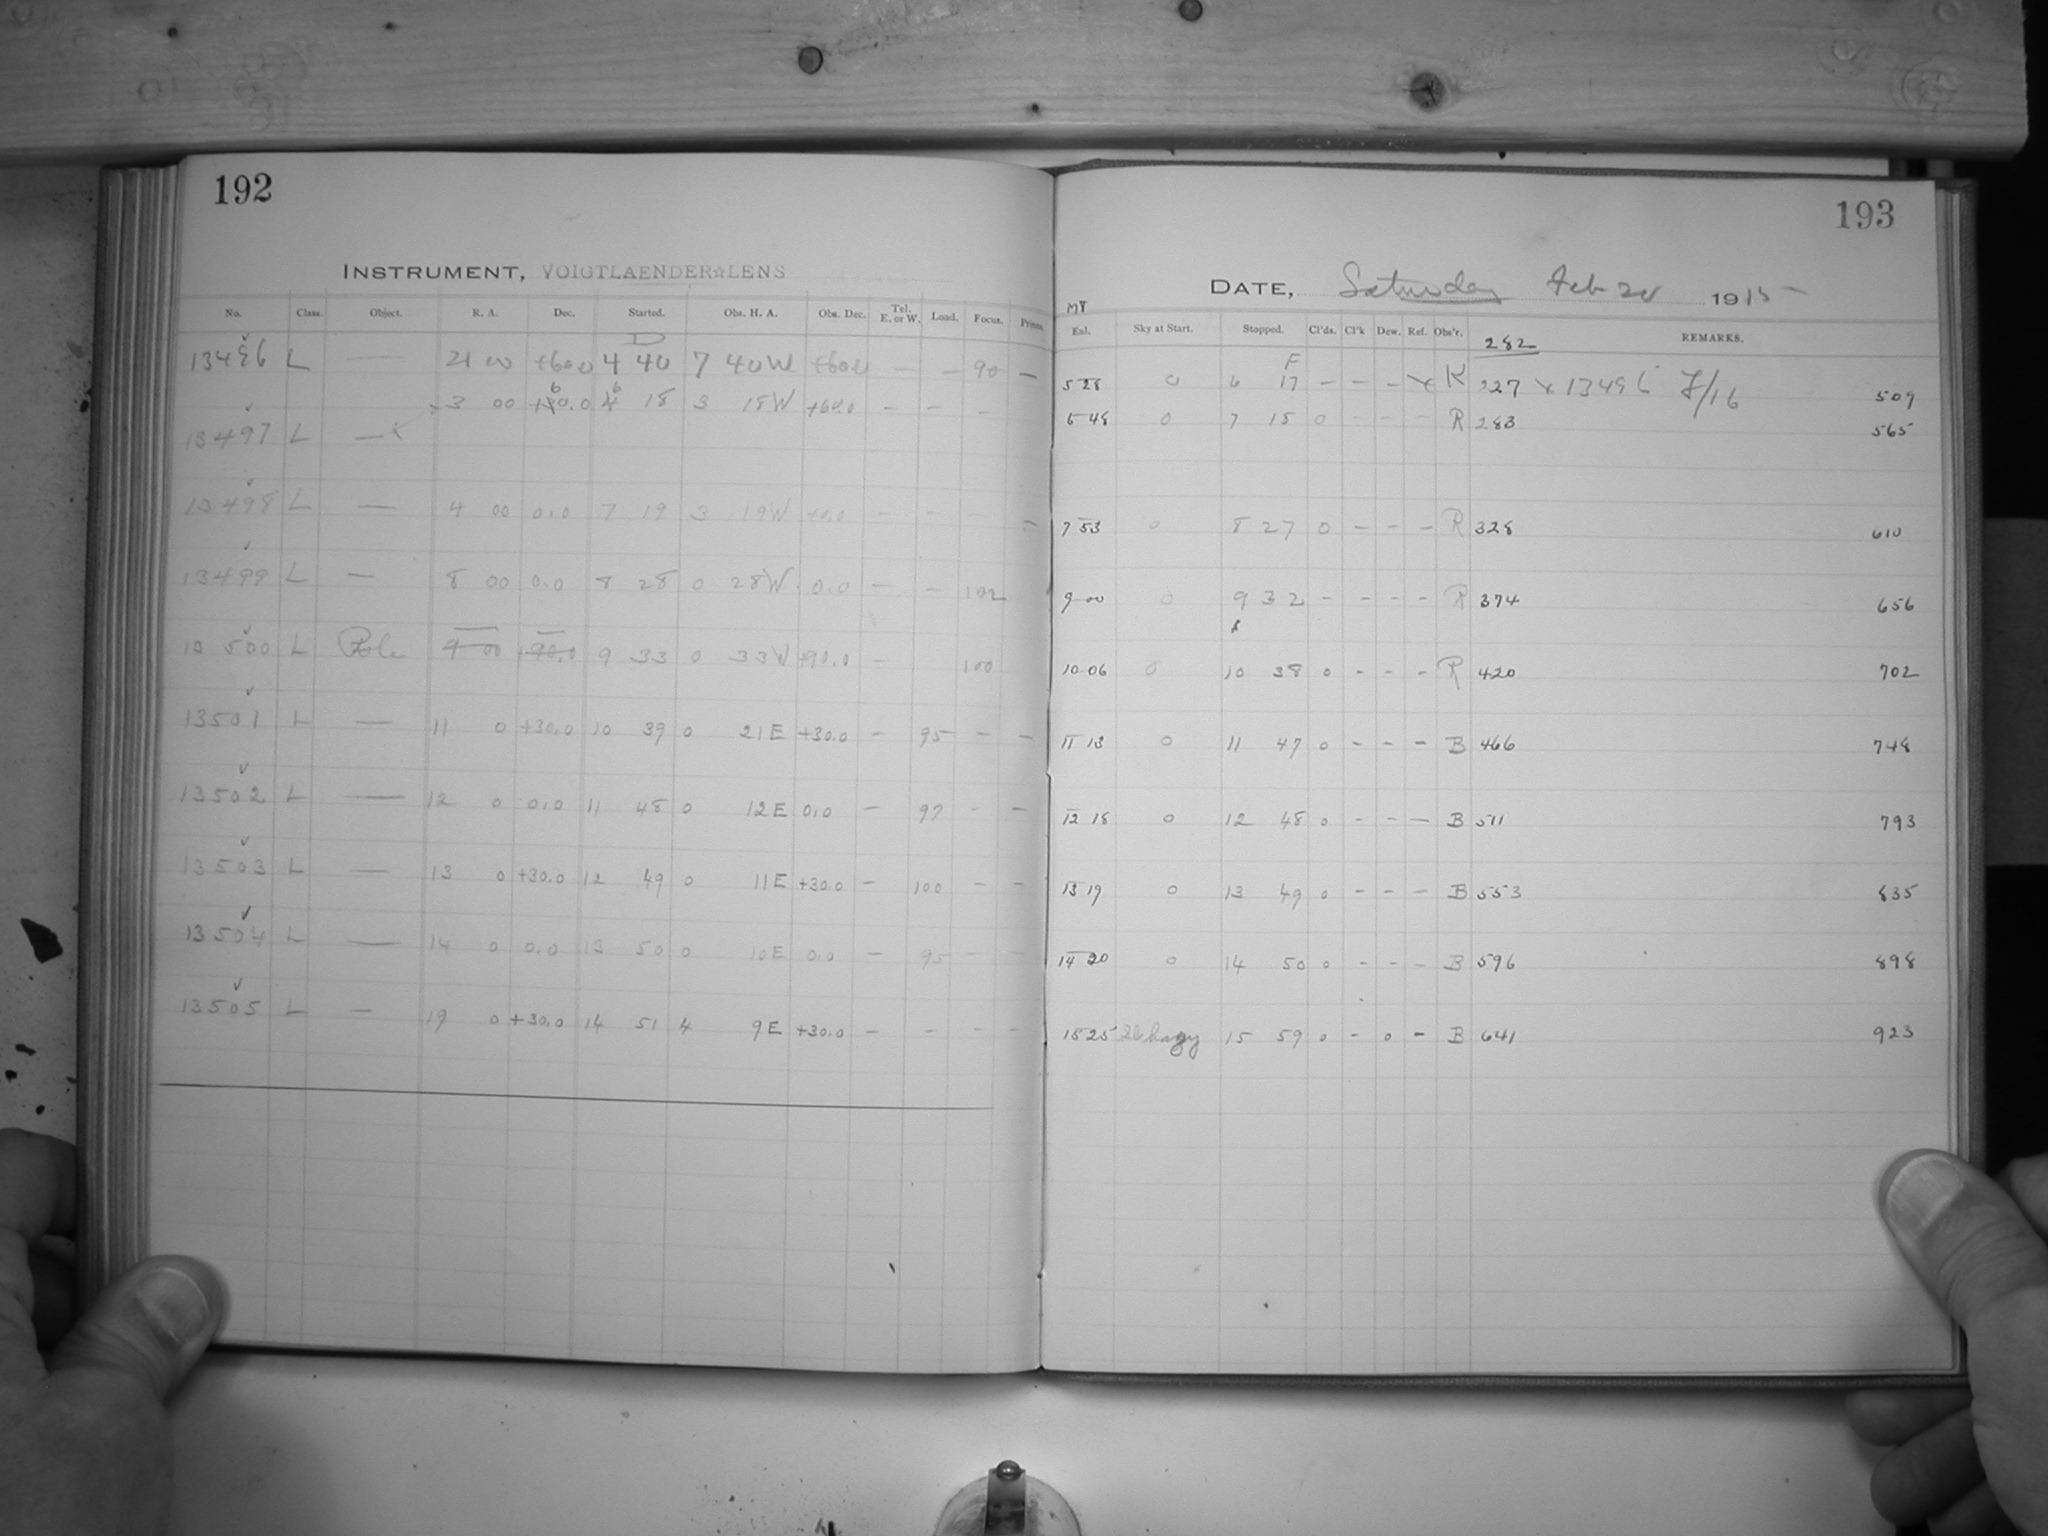 192
INSTRUMENT, VOIGTLAENDER☆LENS
No. Class. Object. R. A. Dec. Started. Obs. H. A. Obs. Dec. Tel. E. or W. Load. Focus. Prisms.
13496 L — 21 00 +60.0 4 40 7 40W +60.0 — — 90 —
3 00 +60.0 6 18 3 18W +60.0 — — —
13497 L —
13498 L — 4 00 0.0 7 19 3 19W +0.0 — — — —
13499 L — 8 00 0.0 8 28 0 28W 0.0 — — 102
13500 L Pole 9 00 +90.0 9 33 0 33W +90.0 — 100
13501 L — 11 0 +30.0 10 39 0 21E +30.0 — 95 — —
13502 L — 12 0 0.0 11 48 0 12E 0.0 — 97 - —
13503 L — 13 0 +30.0 12 49 0 11E +30.0 — 100 - —
13504 L — 14 0 0.0 13 50 0 10E 0.0 — 95 — —
13505 L — 19 0 +30.0 14 51 4 9E +30.0 — - - —
193
DATE, Saturday Feb 20 1915
Exl. Sky at Start. Stopped. Cl'ds. Cl'k Dew. Ref. Obs'r. 282 REMARKS.
F
5 28 0 6 17 — — — K 227 x 13496 F/16 509
6 48 0 7 18 0 - - - R 283 565
7 53 0 8 27 0 — - — R 328 610
9 00 0 9 32 - - - - R 374 656
10 06 0 10 38 0 - - - R 420 702
11 13 0 11 47 0 - - - B 466 748
12 18 0 12 48 0 - - — B 511 793
13 19 0 13 49 0 - - — B 553 835
14 20 0 14 50 0 - - - B 596 898
15 25 hazy 15 59 0 - 0 - B 641 923